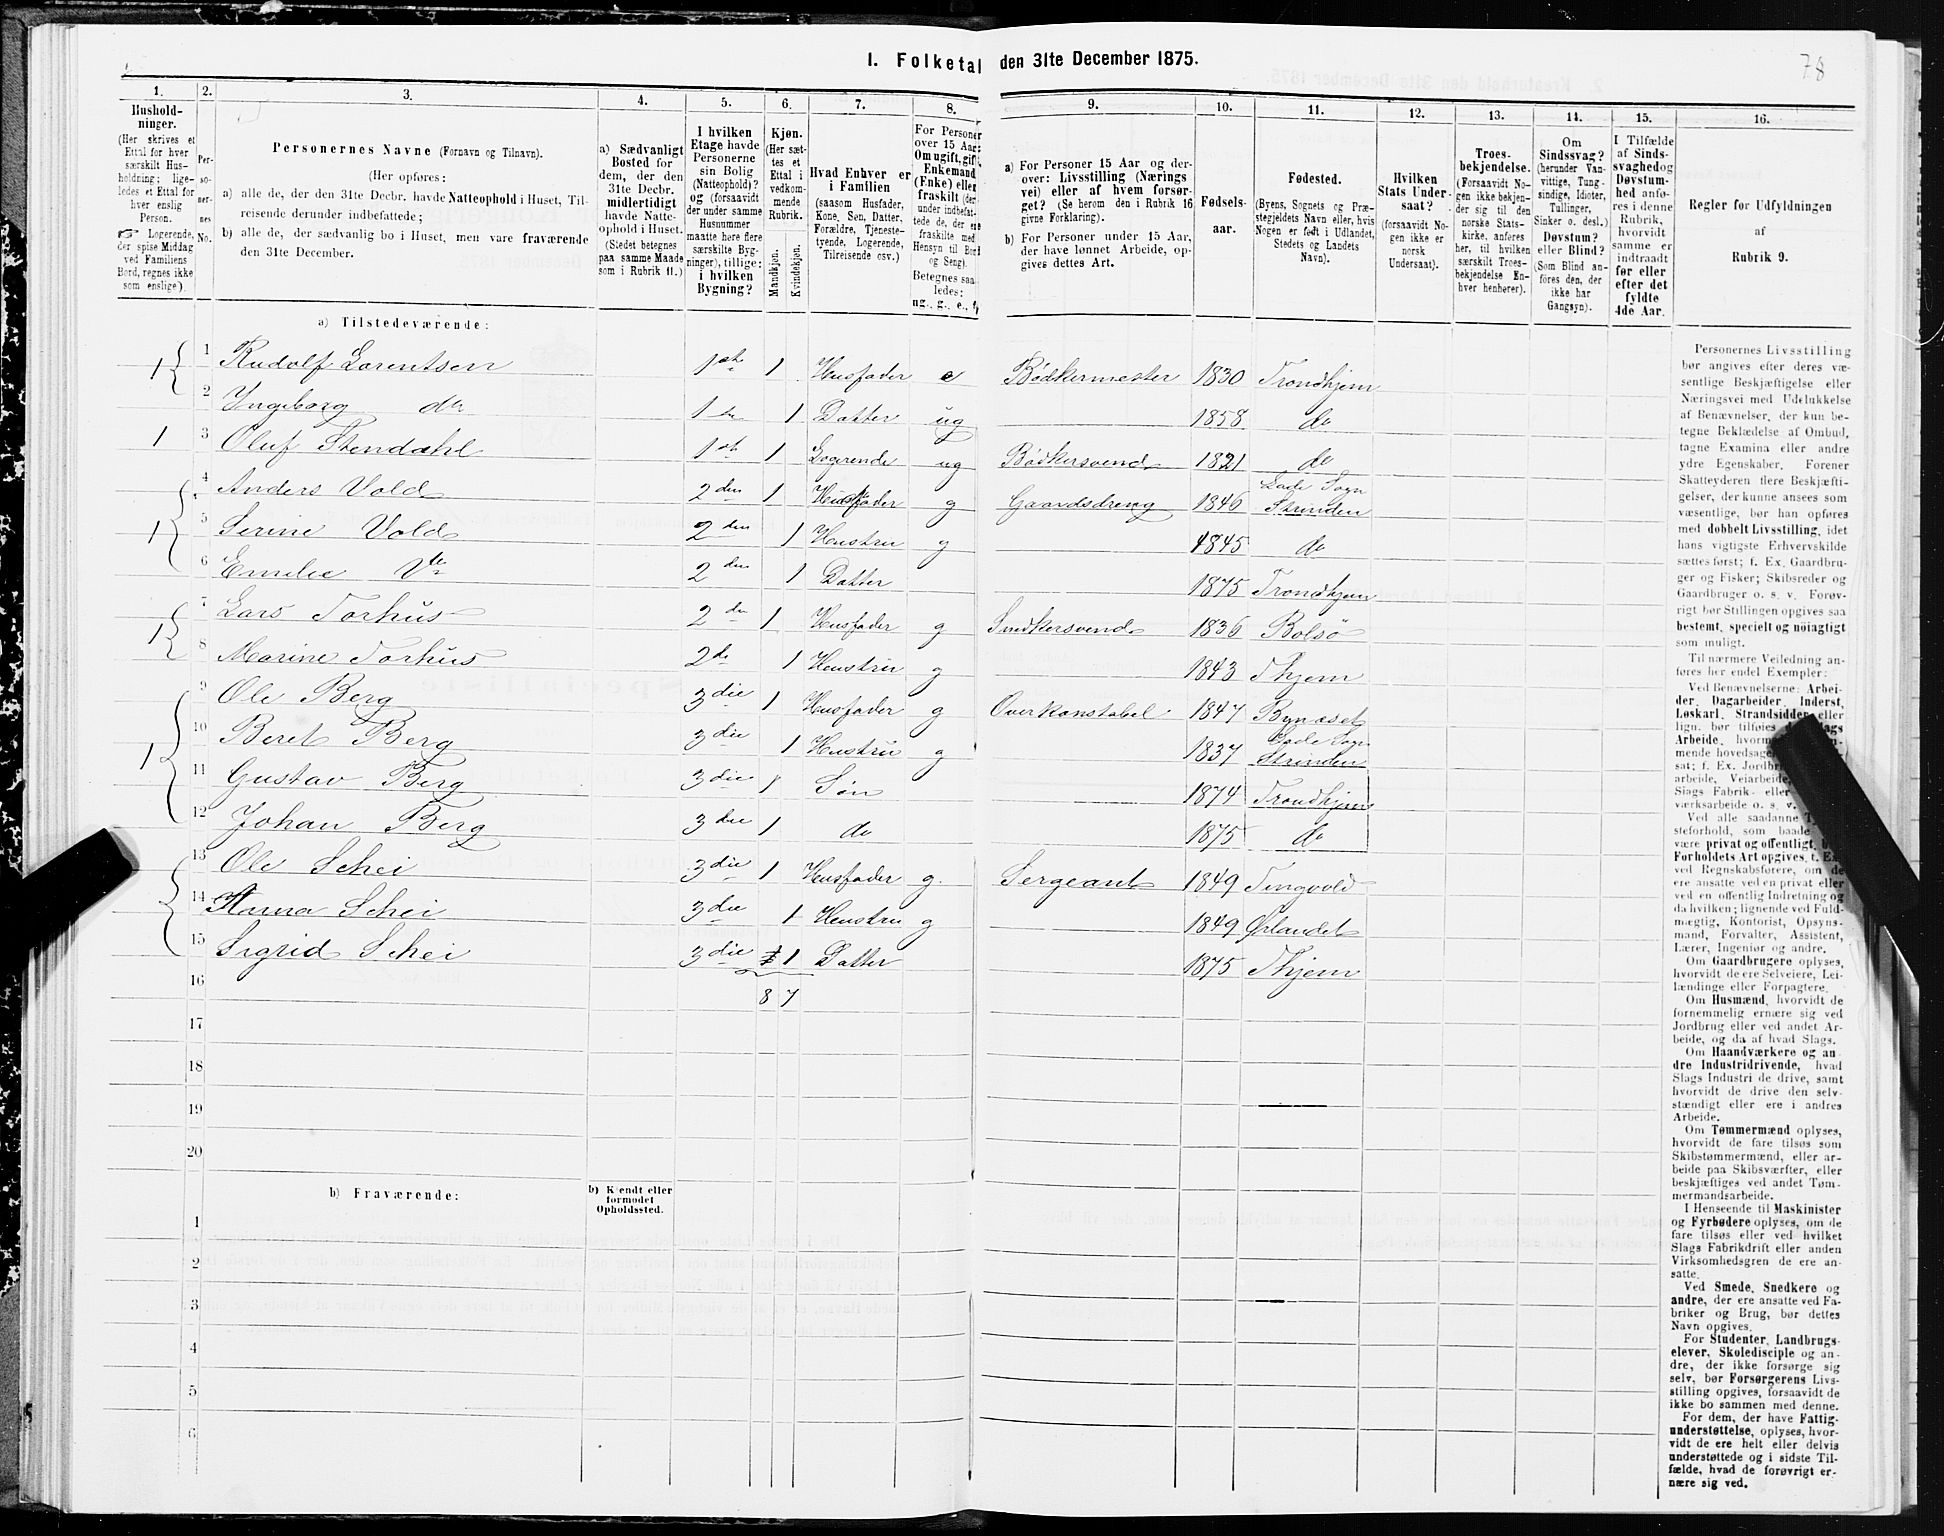 I. Folketal den 31te December 1875.
78
1.
Hushold-
ninger.
(Her skrives et
Ettal for hver
særskilt Hus-
holdning; lige-
ledes et Ettal for
hver enslig
Person.
☞ Logerende,
der spise Middag
ved Familiens
Bord, regnes ikke
som enslige).
2.
Per-
so-
ner-
nes
No.
3.
Personernes Navne (Fornavn og Tilnavn).
(Her opføres:
a) alle de, der den 31te Decbr. havde Natteophold i Huset, Til-
reisende derunder indbefattede;
b) alle de, der sædvanlig bo i Huset, men vare fraværende
den 31te December.
4.
a) Sædvanligt
Bosted for
dem, der den
31te Decbr.
midlertidigt
havde Natte-
ophold i Huset.
(Stedet betegnes
paa samme Maade
som i Rubrik 11.)
5.
I hvilken
Etage havde
Personerne
sin Bolig
(Natteophold)?
og (forsaavidt
der under samme
Husnummer
maatte høre flere
særskilte Byg-
ninger), tillige:
i hvilken
Bygning?
6.
Kjøn.
(Her sæt-
tes et
Ettal i
vedkom-
mende
Rubrik.
Mandkjøn.
Kvindekjøn.
7.
Hvad Enhver er
i Familien
(saasom Husfader,
Kone, Søn, Datter,
Forældre, Tjeneste-
tyende, Logerende,
Tilreisende osv.)
8.
For Personer
over 15 Aar:
Om ugift, gift,
Enkemand
(Enke) eller
fraskilt (der-
under indbefat-
tede de, der ere
fraskilte med
Hensyn til Bord
og Seng).
Betegnes saa-
ledes:
ug., g., e., f.
9.
a) For Personer 15 Aar og der-
over: Livsstilling (Nærings
vei) eller af hvem forsør-
get? (Se herom den i Rubrik 16
givne Forklaring).
b) For Personer under 15 Aar,
der have lønnet Arbeide, op-
gives dettes Art.
10.
Fødsels-
aar.
11.
Fødested.
(Byens, Sognets og Præ-
stegjeldets Navn eller, hvis
Nogen er født i Udlandet,
Stedets og Landets
Navn).
12.
Hvilken
Stats Under-
saat?
(forsaavidt No-
gen ikke er
norsk
Undersaat).
13.
Troes-
bekjendelse.
(Forsaavidt No-
gen ikke bekjen-
der sig til den
norske Stats-
kirke, anføres
her, til hvilken
særskilt Troes-
bekjendelse En-
hver henhører).
14.
Om
Sindssvag?
(herunder Van-
vittige, Tung-
sindige, Idioter,
Tullinger,
Sinker o. desl.)
Døvstum?
eller Blind?
(Som Blind an-
føres den, der
ikke har
Gangsyn).
15.
I Tilfælde
af Sinds-
svaghed og
Døvstum-
hed anfø-
res i denne
Rubrik,
hvorvidt
samme er
indtraadt
før eller
efter det
fyldte
4de Aar.
16.
Regler for Udfyldningen
af
Rubrik 9.
a) Tilstedeværende:
1 1 Rudolf Lorentsen 1ste 1 Husfader e Bødkermester 1830 Trondhjem
2 Ingeborg do 1ste 1 Datter ug 1858 do
1 3 Oluf Stendahl 1ste 1 Logerende ug Bødkersvend 1821 do
4 Anders Vold 2den 1 Husfader g Gaardsdreng 1846 Lade Sogn Strinden
1 5 Serine Vold 2den 1 Hustru g 1845 do
6 Emilie do 2den 1 Datter 1875 Trondhjem
7 Lars Torhus 2den 1 Husfader g Snedkersvend 1836 Bolsö
1 8 Marine Torhus 2de 1 Hustru g 1843 Thjem
9 Ole Berg 3die 1 Husfader g Overkonstabel 1847 Bynæset
1 10 Beret Berg 3die 1 Hustru g 1837 Lade Sogn Strinden
11 Gustav Berg 3die 1 Søn 1874 Trondhjem
12 Johan Berg 3die 1 do 1875 do
13 Ole Schei 3die 1 Husfader g. Sergeant 1849 Tingvold
14 Hanna Schei 3die 1 Hustru g 1849 Ørlandet
15 Sigrid Schei 3die 1 Datter 1875 Thjem
16 8 7
17
18
19
20
b) Fraværende:
b) Kjendt eller
formodet
Opholdssted.
1
2
3
4
5
6
Personernes Livsstilling
bør angives efter deres væ-
sentlige Beskjæftigelse eller
Næringsvei med Udelukkelse
af Benævnelser, der kun be-
tegne Beklædelse af Ombud,
tagne Examina eller andre
ydre Egenskaber. Forener
Skatteyderen flere Beskjæfti-
gelser, der kunne ansees som
væsentlige, bør han opføres
med dobbelt Livsstilling, idet
hans vigtigste Erhvervskilde
sættes først; f. Ex. Gaardbru-
ger og Fisker; Skibsreder og
Gaardbruger o. s. v. Forøv-
rigt bør Stillingen opgives saa
bestemt, specielt og nöiagtigt
som muligt.
Til nærmere Veiledning an-
føres her endel Exempler:
Ved Benævnelserne: Arbei-
der, Dagarbeider, Inderst,
Løskarl, Strandsidder eller
lign. bør tilføies
Arbeide, hvorm
mende hovedsag
sat; f. Ex. Jordbr
arbeide, Veiarbeide,
Slags Fabrik- eller
værksarbeide o. s. v.
Ved alle saadanne
steforhold, som baade
være privat og offentligt,
Forholdets Art opgives, f. Ex.
ved Regnskabsførere, om de
ere ansatte ved en privat eller
ved en offentlig Indretning og
da hvilken; lignende ved Fuld-
mægtig, Kontorist, Opsyns-
mand, Forvalter, Assistent,
Lærer, Ingeniør og andre.
Om Gaardbrugere oplyses,
hvorvidt de ere Selveiere, Lei-
lændinge eller Forpagtere.
Om Husmænd, hvorvidt de
fornemmelig ernære sig ved
Jordbrug eller ved andet Ar-
beide, og da af hvad Slags.
Om Haandværkere og an-
dre Industridrivende, hvad
Slags Industri de drive, samt
hvorvidt de drive den selv-
stændigt eller ere i andres
Arbeide.
Om Tømmermænd oplyses,
hvorvidt de fare tilsøs som
Skibstømmermænd, eller ar-
beide paa Skibsværfter, eller
beskjæftiges ved andet Tøm-
mermandsarbeide.
I Henseende til Maskinister
og Fyrbødere oplyses, om de
fare tilsøs eller ved hvilket
Slags Fabrikdrift eller anden
Virksomhedsgren de ere an-
satte.
Ved Smede, Snedkere og
andre, der ere ansatte ved Fa-
briker og Brug, bør dettes
Navn opgives.
For Studenter, Landbrugs-
elever, Skoledisciple og an-
dre, der ikke forsørge sig
selv, bør Forsørgerens Livs-
stilling opgives, forsaavidt de
ikke bo sammen med denne.
For dem, der have Fattig-
understøttelse, oplyses, hvor-
vidt de ere helt eller delvis
understøttede og i sidste Til-
fælde, hvad de forøvrigt er-
nære sig ved.